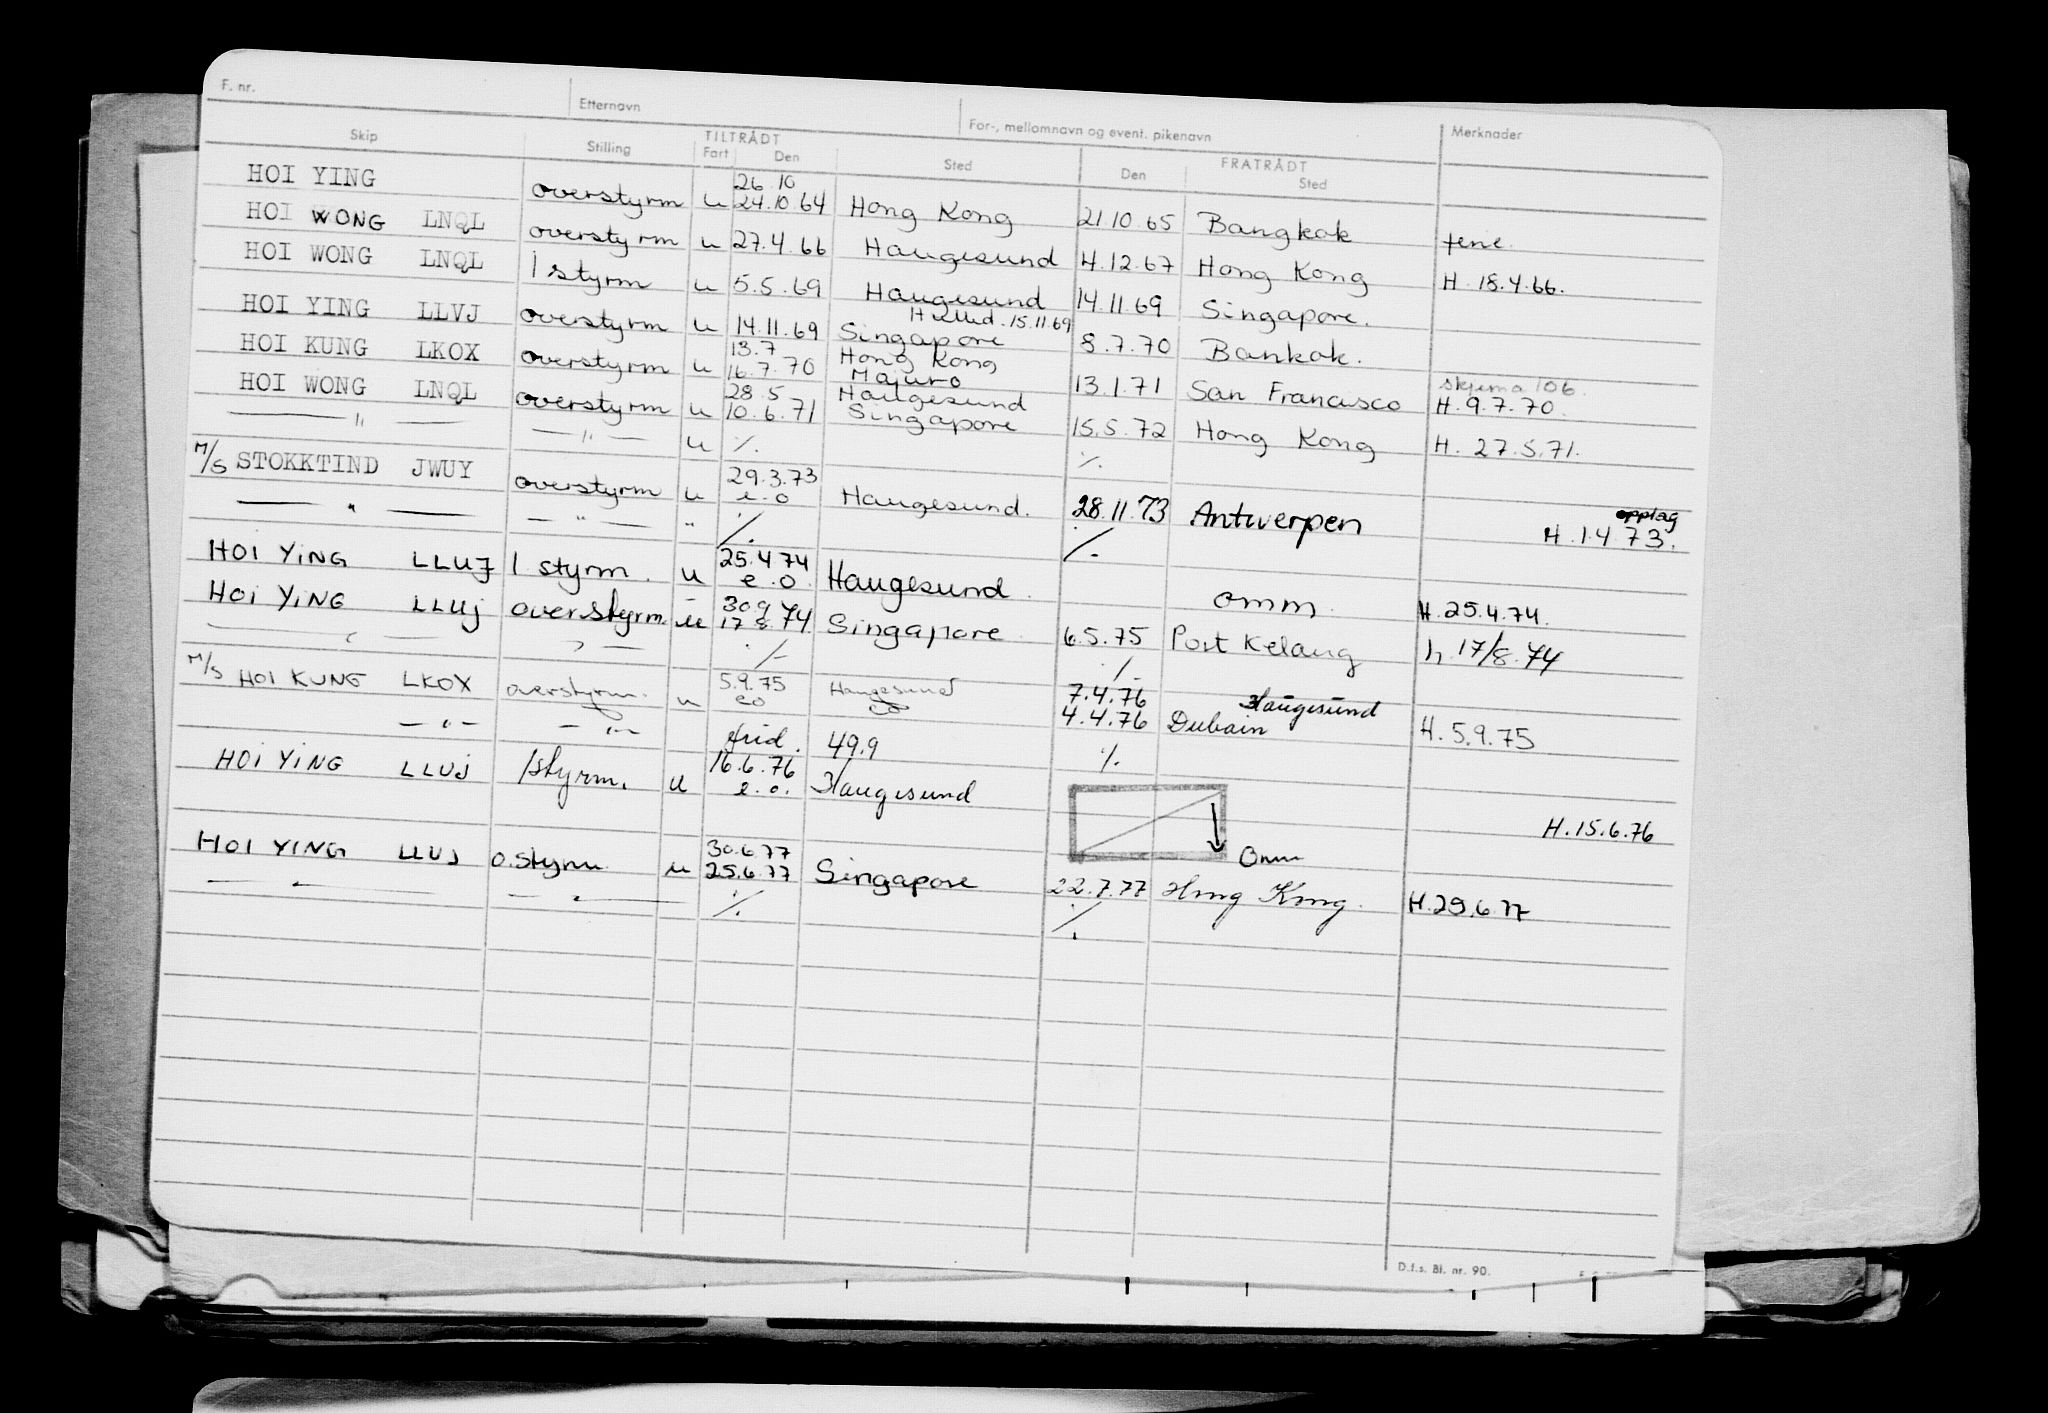 F. nr. Etternavn For-, mellomnavn og event. pikenavn Merknader
Skip Stilling TILTRÅDT FRATRÅDT
Fart Den Sted Den Sted
HOI YING overstyrm u 26.10 24.10.64 Hong Kong 21.10.65 Bangkok
HOI WONG LNQL overstyrm u 27.4.66 Haugesund 4.12.67 Hong Kong H. 18.4.66.
HOI WONG LNQL 1 styrm u 5.5.69 Haugesund 14.11.69 Singapore.
HOI YING LLVJ overstyrm u 14.11.69 Singapore 15.11.69 8.7.70 Bankok.
HOI KUNG LKOX overstyrm u 13.7 16.7.70 Hong Kong Majuro 13.1.71 San Francisco skjema 106. H. 9.7.70.
HOI WONG LNQL overstyrm u 28.5 10.6.71 Haugesund Singapore 15.5.72 Hong Kong H. 27.5.71.
— " — — " — u ./. ./.
M/S STOKKTIND JWUY overstyrm u 29.3.73 e.o Haugesund. 28.11.73 Antwerpen opplag H. 1.4 73.
— " — — " — " ./. ./.
HOI YING LLUJ 1 styrm. u 25.4.74 e.o. Haugesund. omm. H. 25.4.74.
HOI YING LLUJ overstyrm. u 30.9 17.8.74 Singapore 6.5.75 Port Kelang h. 17/8.74
— " — — " — ./. ./.
M/S HOI KUNG LKOX overstyrm. u 5.9.75 eo Haugesund eo 7.4.76 4.4.76 Haugesund Dubain H. 5.9.75
— " — — " — frid. 49.9 ./.
HOI YING LLUJ 1styrm. u 16.6.76 e.o. Haugesund Omm H. 15.6.76
HOI YING LLUJ O.styrm. u 30.6.77 25.6.77 Singapore 22.7.77 Hong Kong. H. 29.6.77
— " — — " — ./. ./.
D.f.s. Bl. nr. 90.